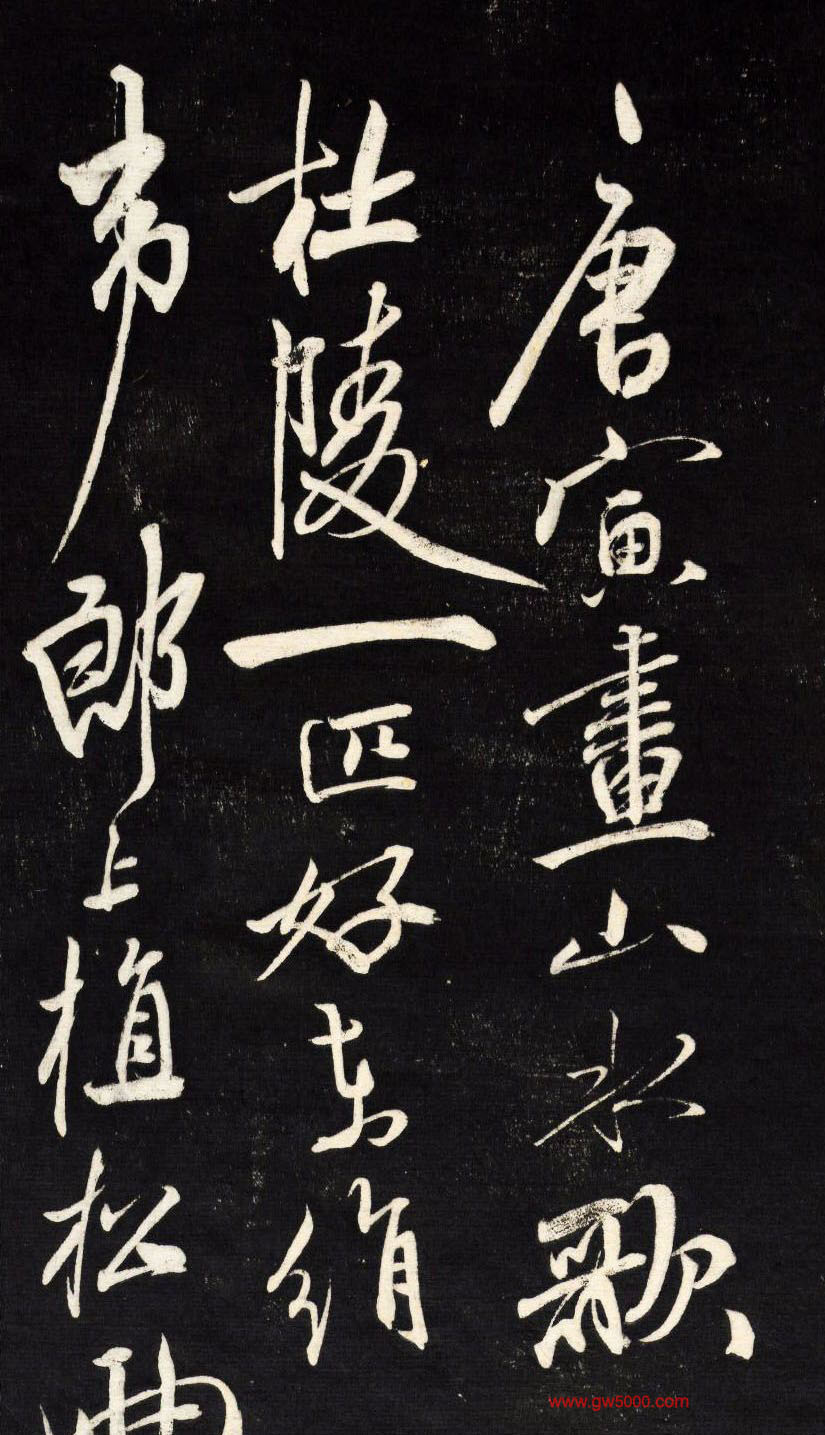 唐寅畫山水歌
杜陵一匹好東絹
韋郎上植松
www.gw5000.com